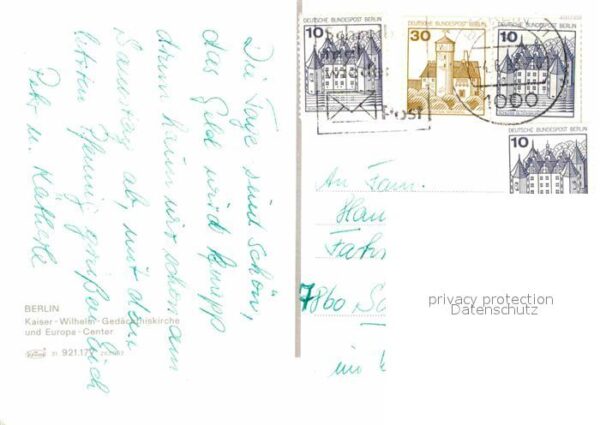 Die Tage sind schön,
das Geld wird knapp
drum kommen wir schon am
Samstag ab, mit dem
letzten Pfennig grüßen Euch
Petr u. Käthele
BERLIN
Kaiser-Wilhelm-Gedächtniskirche
und Europa-Center
31 921.177
DEUTSCHE BUNDESPOST BERLIN
10
DEUTSCHE BUNDESPOST BERLIN
30
DEUTSCHE BUNDESPOST BERLIN
10
DEUTSCHE BUNDESPOST BERLIN
10
Post
1000
An Fam.
Hau
Fahr
7860 Sc
privacy protection
Datenschutz